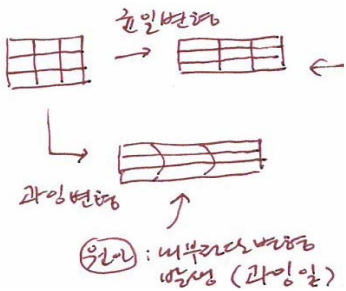 균일변형
과잉변형
원인 : 내부전단변형
발생 (과잉일)